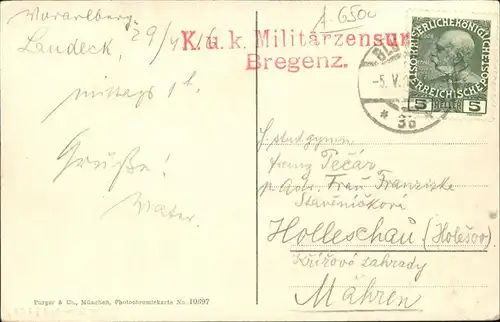 Vorarlberg.
Landeck, 29/4 16
mittags 1h.
Grüße!
Vater.
A.6500
K. u. k. Militärzensur
Bregenz.
KAISERLICHE KÖNIGLICHE
ÖSTERREICHISCHE POST
5 HELLER 5
BLU
-5. V.
* 3b *
H. stud. gymn.
Franz Pečár
p. Adr. Frau Franziske
Stavěníčkové
Holleschau (Holešov)
Křížové zahrady
Mähren
Purger & Co., München, Photochromiekarte No. 10697